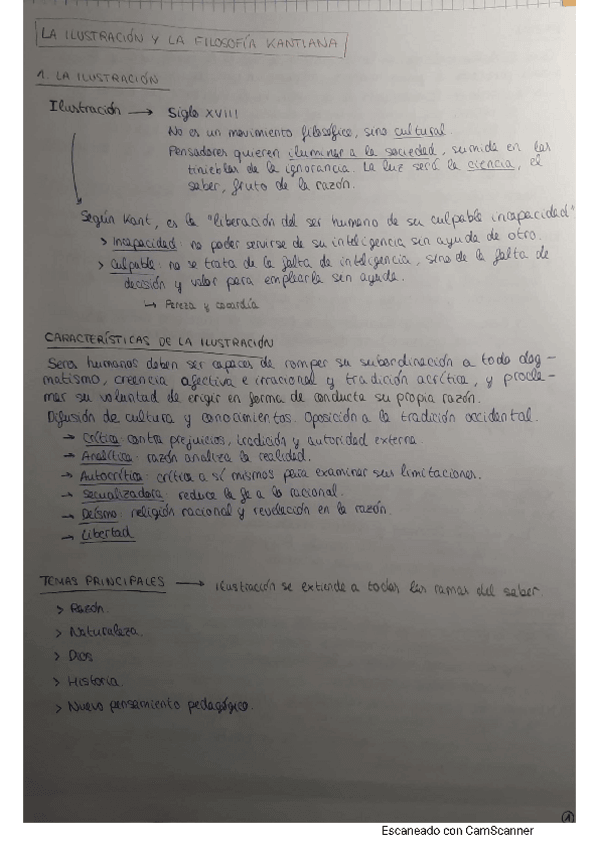 LA ILUSTRACIÓN Y LA FILOSOFÍA KANTIANA
1. LA ILUSTRACIÓN
Ilustración → Siglo XVIII
No es un movimiento filosófico, sino cultural.
Pensadores quieren iluminar a la sociedad, sumida en las
tinieblas de la ignorancia. La luz será la ciencia, el
saber, fruto de la razón.
Según Kant, es la "liberación del ser humano de su culpable incapacidad"
> Incapacidad: no poder servirse de su inteligencia sin ayuda de otro.
> Culpable: no se trata de la falta de inteligencia, sino de la falta de
decisión y valor para emplearla sin ayuda.
↳ Pereza y cobardía
CARACTERÍSTICAS DE LA ILUSTRACIÓN
Seres humanos deben ser capaces de romper su subordinación a todo dog-
matismo, creencia afectiva e irracional y tradición acrítica, y procla-
mar su voluntad de erigir en forma de conducta su propia razón.
Difusión de cultura y conocimientos. Oposición a la tradición occidental.
→ Crítica: contra prejuicios, tradición y autoridad externa.
→ Analítica: razón analiza la realidad.
→ Autocrítica: crítica a sí mismos para examinar sus limitaciones.
→ Secualizadora: reduce la fe a lo racional.
→ Deísmo: religión racional y revelación en la razón.
→ Libertad
TEMAS PRINCIPALES → Ilustración se extiende a todas las ramas del saber.
> Razón.
> Naturaleza.
> Dios
> Historia.
> Nuevo pensamiento pedagógico.
1
Escaneado con CamScanner